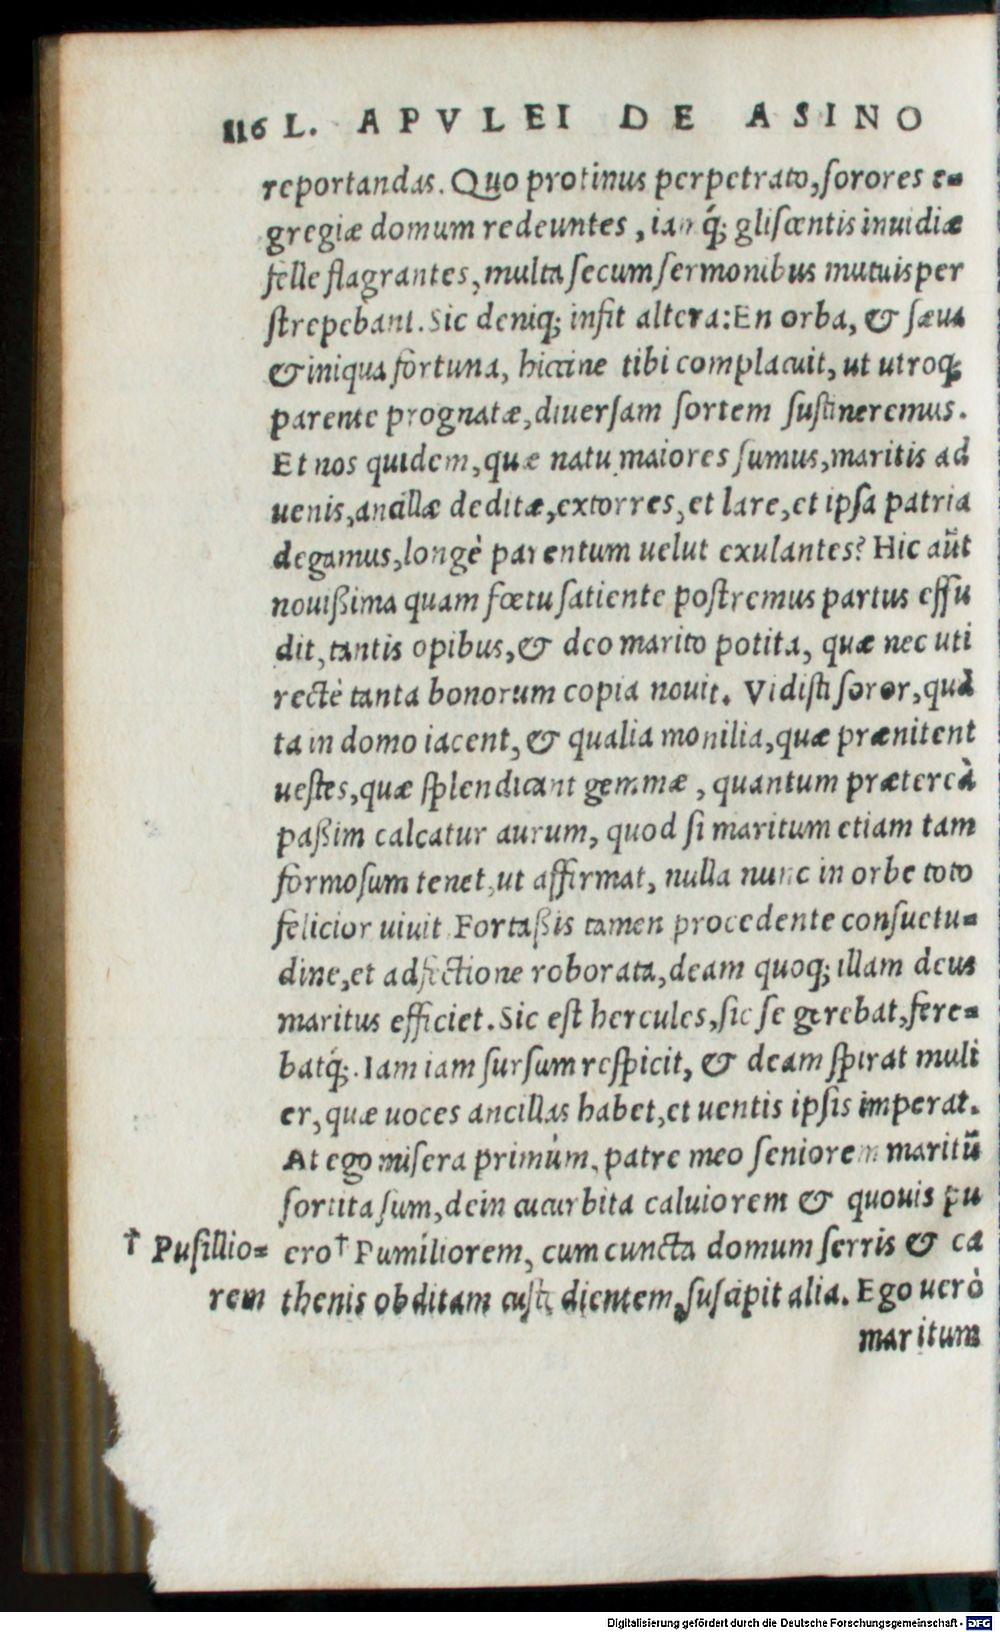 116 L. APVLEI DE ASINO
reportandas. Quo protinus perpetrato, sorores e=
gregiæ domum redeuntes, iamq́; gliscentis inuidiæ
felle flagrantes, multa secum sermonibus mutuis per
strepebant. Sic deniq; infit altera: En orba, & sæua
& iniqua fortuna, hiccine tibi complacuit, ut utroq;
parente prognatæ, diuersam sortem sustineremus.
Et nos quidem, quæ natu maiores sumus, maritis ad
uenis, ancillæ deditæ, extorres, et lare, et ipsa patria
degamus, longè parentum uelut exulantes? Hic aũt
nouißima quam fœtu satiente postremus partus effu
dit, tantis opibus, & deo marito potita, quæ nec uti
rectè tanta bonorum copia nouit. Vidisti soror, quã
ta in domo iacent, & qualia monilia, quæ prænitent
uestes, quæ splendicant gemmæ, quantum prætereà
paßim calcatur aurum, quod si maritum etiam tam
formosum tenet, ut affirmat, nulla nunc in orbe toto
felicior uiuit Fortaßis tamen procedente consuetu=
dine, et adfectione roborata, deam quoq; illam deus
maritus efficiet. Sic est hercules, sic se gerebat, fere=
batq́;. Iam iam sursum respicit, & deam spirat muli
er, quæ uoces ancillas habet, et uentis ipsis imperat.
At ego misera primùm, patre meo seniorem maritũ
sortita sum, dein cucurbita caluiorem & quouis pu
† Pusillio= ero† Pumiliorem, cum cuncta domum serris & ca
rem thenis obditam custodientem, suscipit alia. Ego uerò
maritum
Digitalisierung gefördert durch die Deutsche Forschungsgemeinschaft - DFG